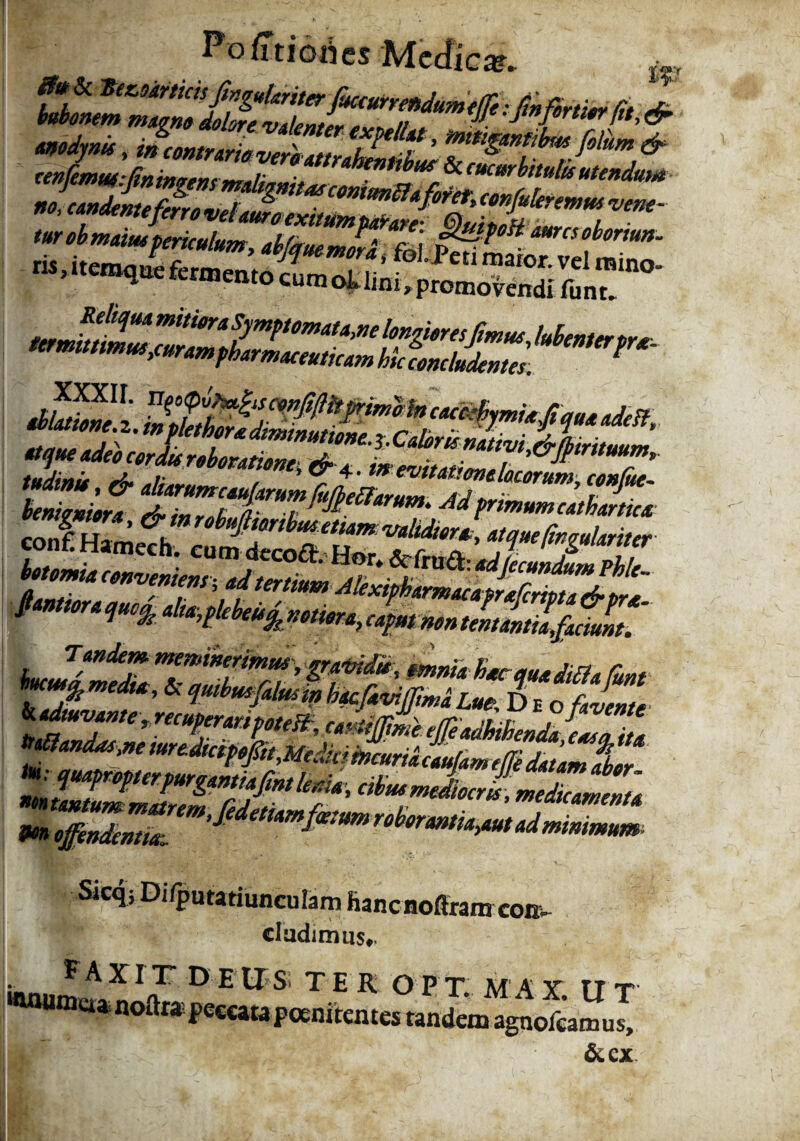 Positiones Medicæ.
ſtu & Bezoarticis ſingulariter ſuccurrendum eſſe: ſin fortior ſit, &
bubonem magno dolore valenter expellat, mitigantibus ſolùm &
anodynis, in contrario verò attrahentibus & cucurbitulis utendum
cenſemus: ſin ingens malignitas coniuncta foret, conſuleremus vene-
no, candente ferro vel auro exitum parare: Qui poſt aures oboriun-
tur ob maius periculum, abſque morâ, fol. Peti maior. vel mino-
ris, itemque fermento cum ol. lini, promovendi ſunt.
Reliqua mitiora Symptomata, ne longiores ſimus, lubenter præ-
termittimus, curam pharmaceuticam hîc concludentes.
XXXII. Προφύλαξις conſiſtit primò in cacochymiæ ſi qua adeſt,
ablatione. 2. in plethoræ diminutione. 3. Caloris nativi, & ſpirituum,
atque adeò cordis roboratione, & 4. in evitatione locorum, conſue-
tudinis, & aliarum cauſarum ſuſpectarum. Ad primum cathartica
benigniora, & in robuſtioribus etiam validiora, atque ſingulariter
conf. Hamech. cum decoct. Hor. & fruct: ad ſecundum Phle-
botomia conveniens; ad tertium Alexipharmaca præſcripta & præ-
ſtantiora quoq; alia, plebeiisq; notiora, caput non tentantia, faciunt.
Tandem meminerimus, gravidis, omnia hæc quæ dicta ſunt
hucusq; media, & quibus ſalus in hac ſæviſſimâ Lue, DEO favente
& adiuvante, recuperari poteſt, cautiſſimè eſſe adhibenda, easq; ita
tractandas, ne iure dici poſſit, Medici incuriâ cauſam eſſe datam abor-
tui: quapropter purgantia ſint lenia, cibus mediocris, medicamenta
non tantum matrem, ſed etiam fœtum roborantia, aut ad minimum
non offendentia.
Sicq; Diſputatiunculam hanc noſtram con-
cludimus.
FAXIT DEUS TER OPT. MAX. UT
innumera noſtra peccata pœnitentes tandem agnoſcamus,
& ex